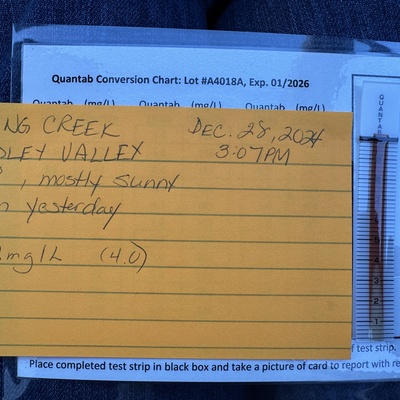 Quantab Conversion Chart: Lot #A4018A, Exp. 01/2026
Quantab (mg/L) Quantab (mg/L) Quantab (mg/L)
NG CREEK
DEC. 28, 2024
DLEY VALLEY
3:07PM
, mostly sunny
yesterday
mg/L (4.0)
QUANTAB
5
4
3
2
1
f test strip.
Place completed test strip in black box and take a picture of card to report with re